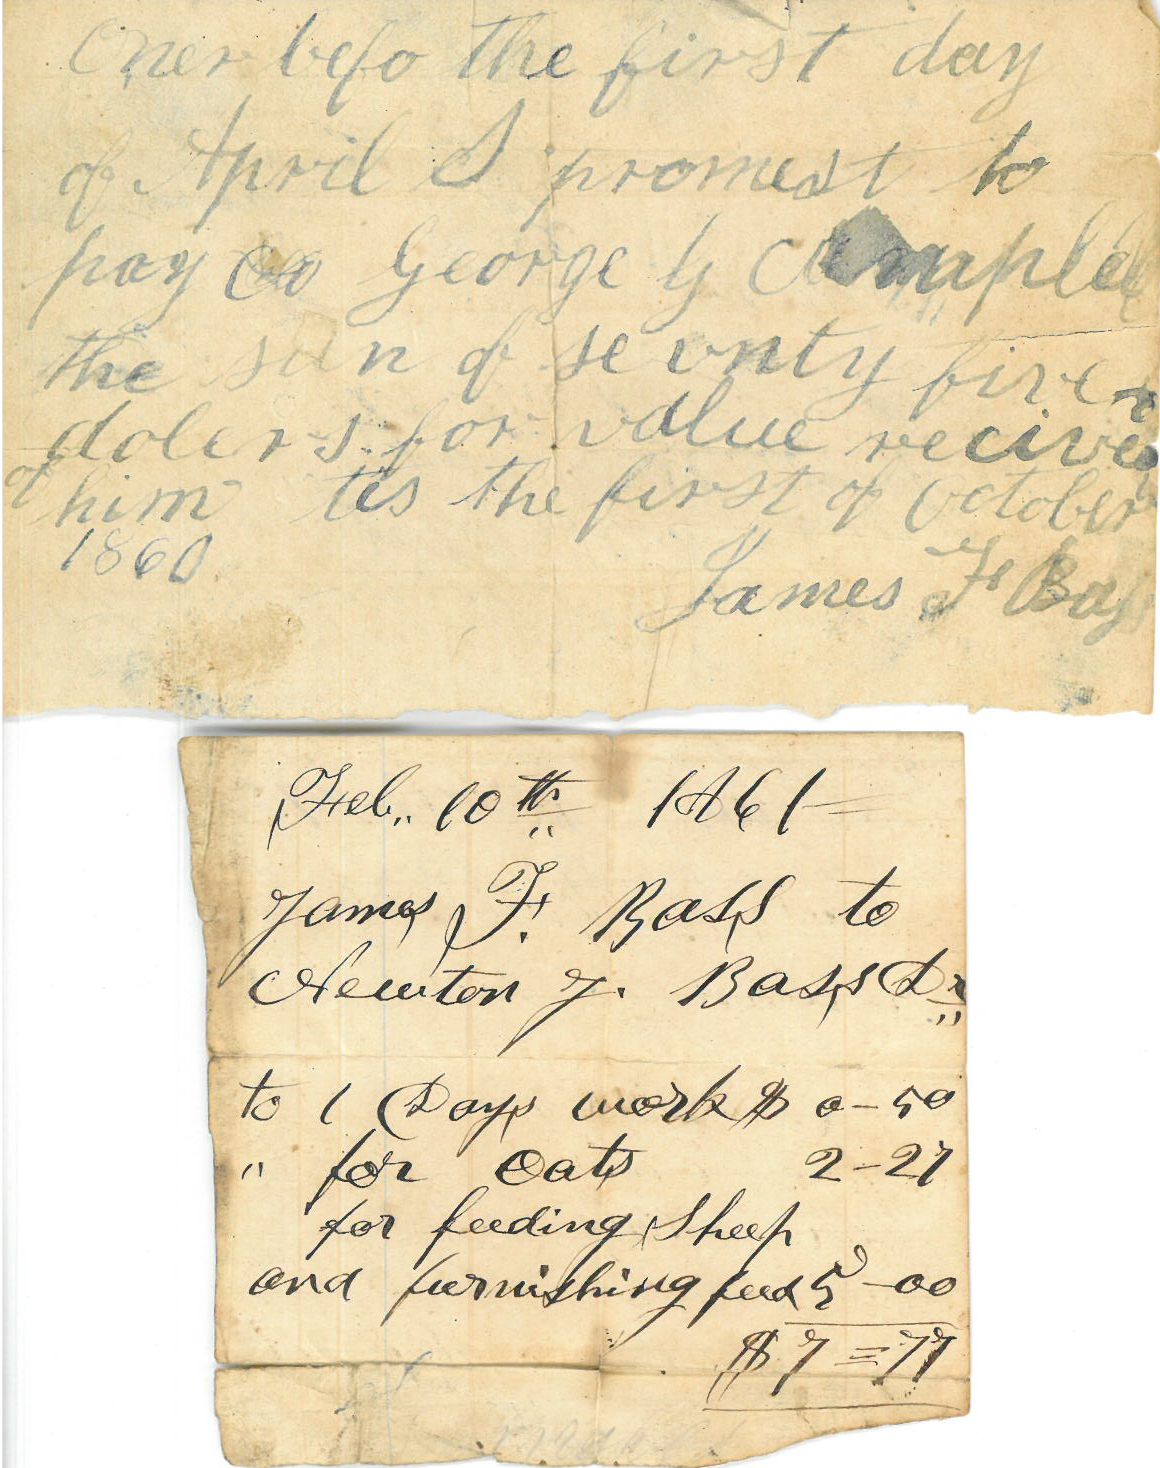 Oner befo the first day
of April I promest to
pay to George G Campble
the sun of sevnty five
dolers for value recive
of him tis the first of October
1860
James F Bas
Feb,, 10th 1861
James F. Bass to
Newton J. Bass Dr
to 1 Days work $ 0-50
" for Oats 2-27
for feeding Sheep
and furnishing feed 5-00
$7=77